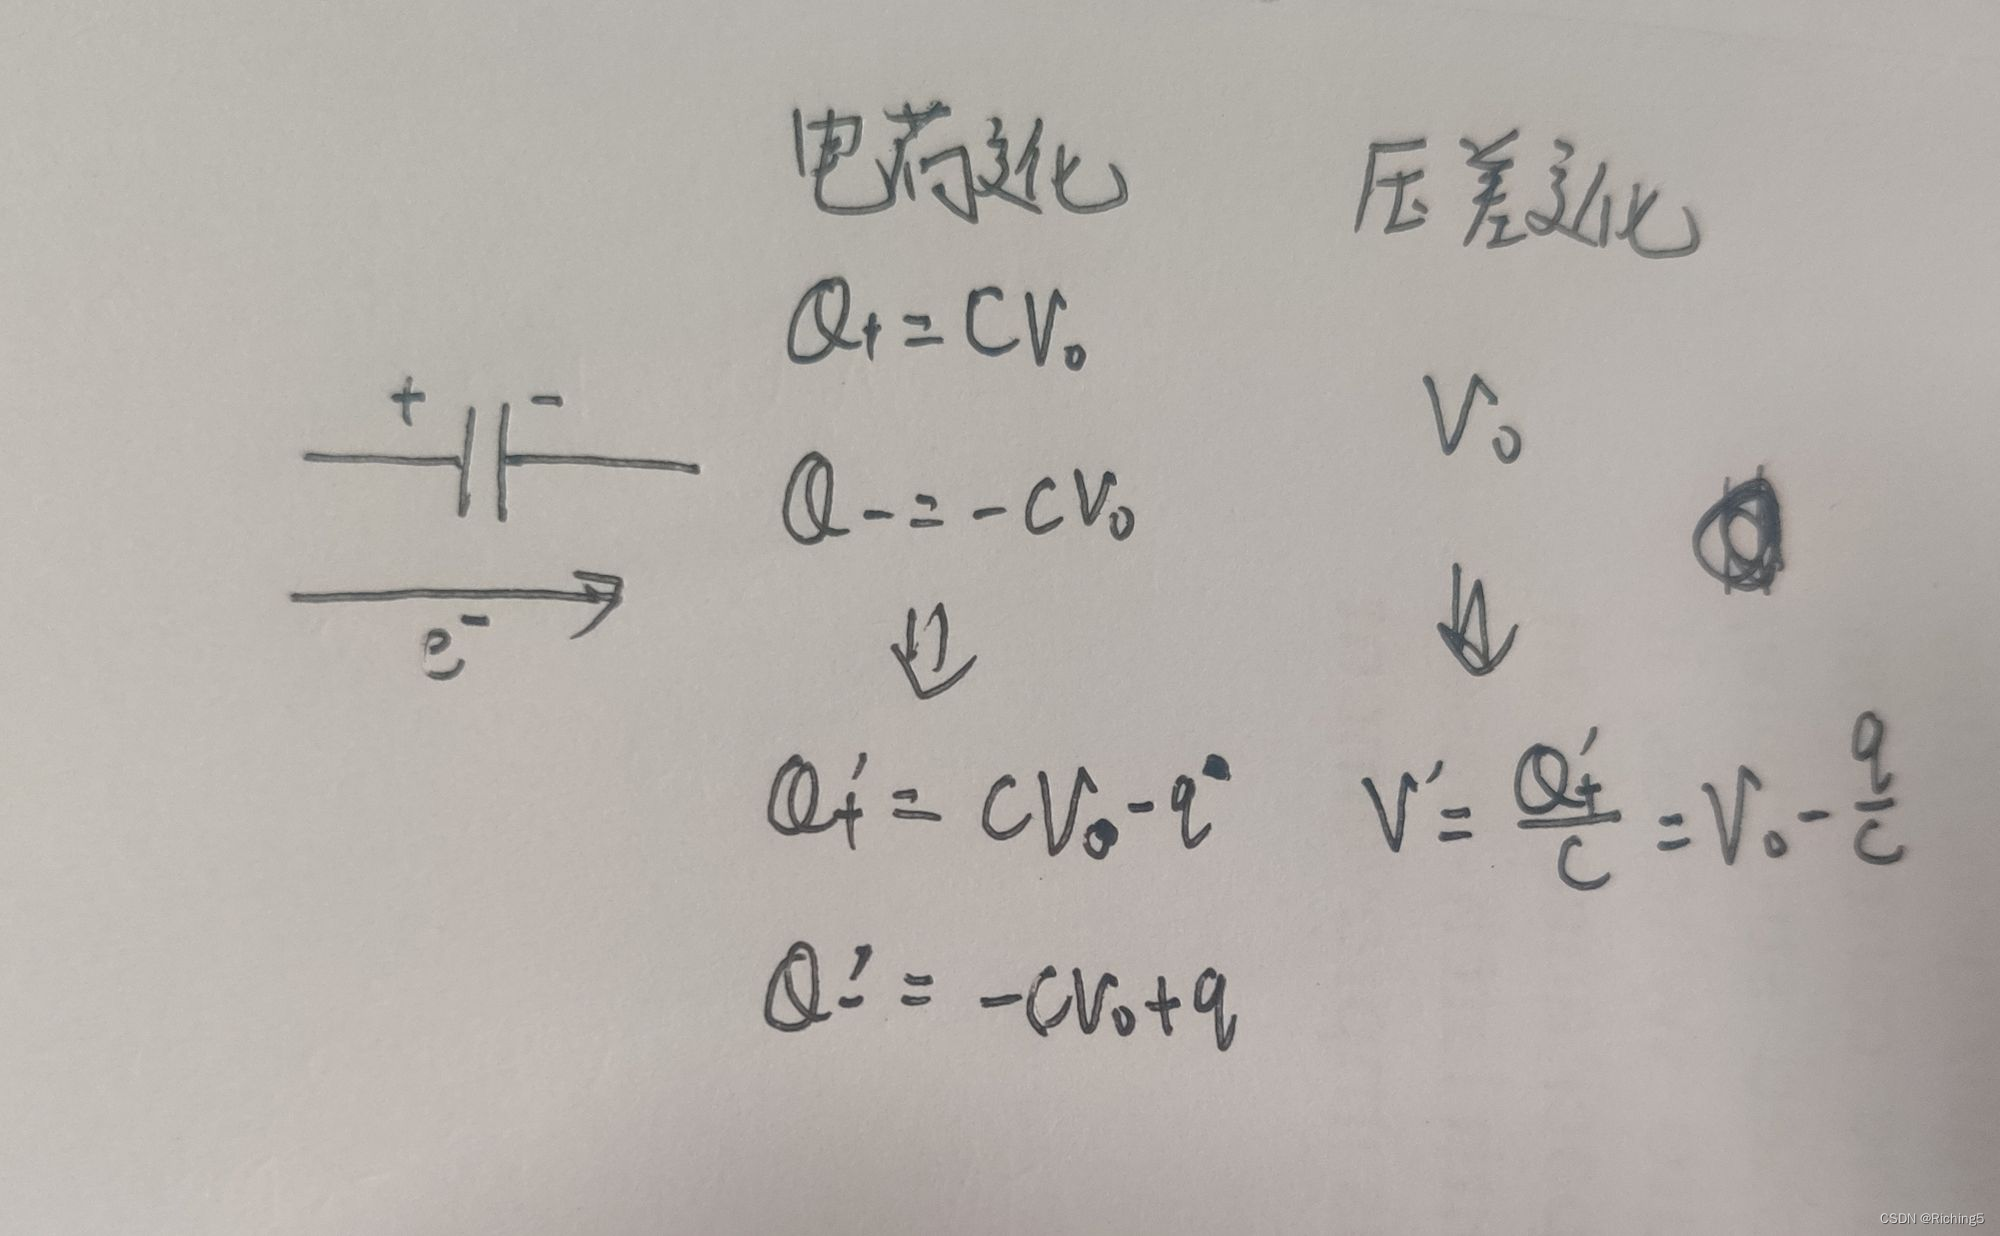 电荷变化
压差变化
Q+ = CV₀
+ -
V₀
Q- = -CV₀
e⁻
Q+' = CV₀ - q
V' = Q+'/C = V₀ - q/C
Q-' = -CV₀ + q
CSDN @Riching5